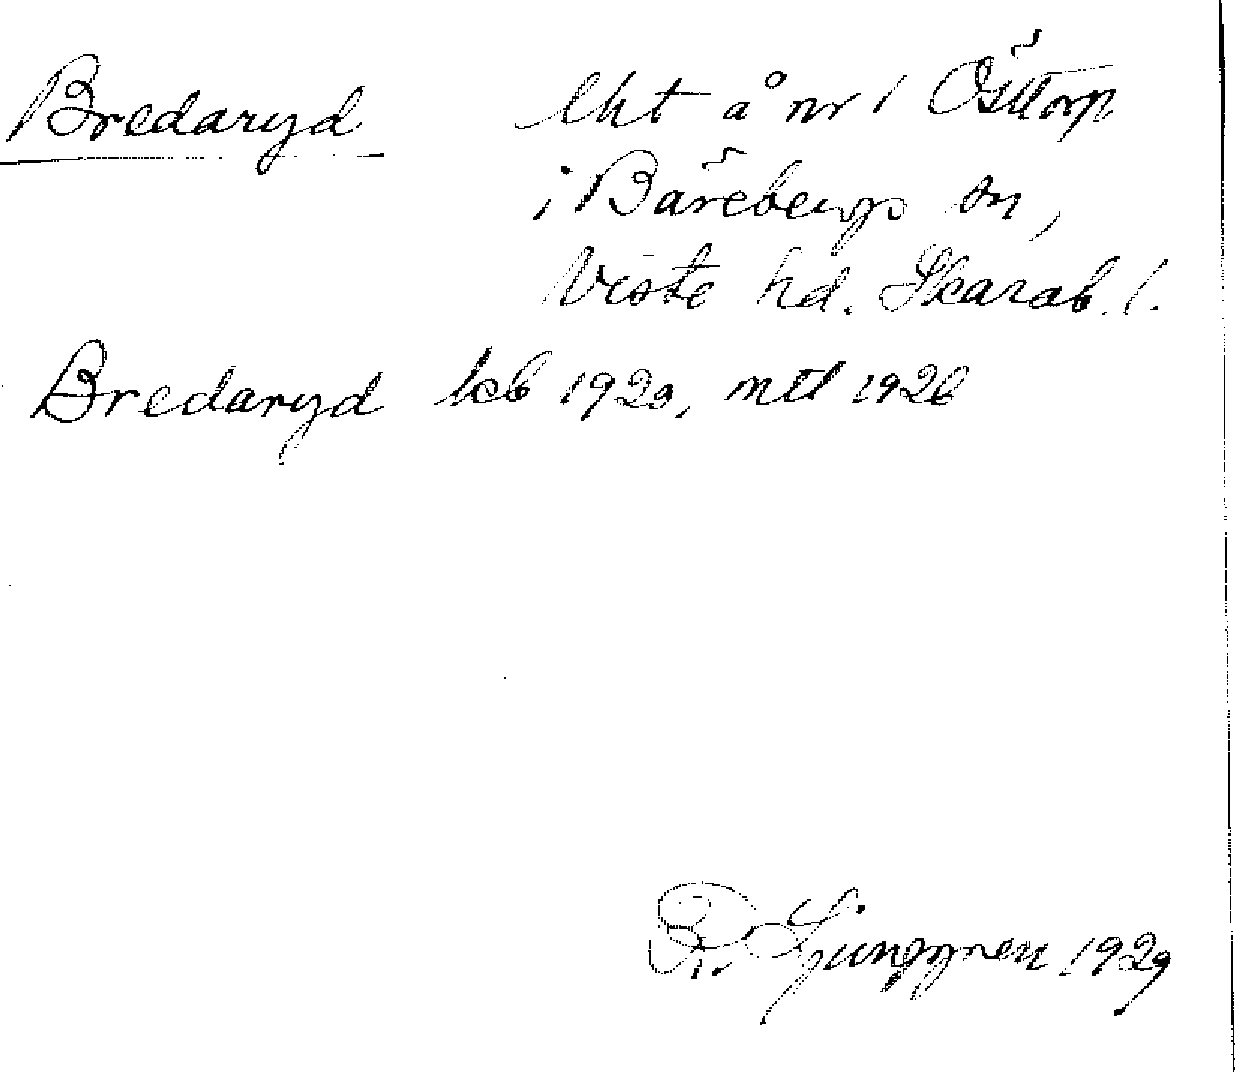 Bredaryd lht å nr 1 Östtorp
i Bärebergs sn,
Viste hd. Skarab. l.
Bredaryd kb 1920, mtl 1926
R. Ljunggren 1929